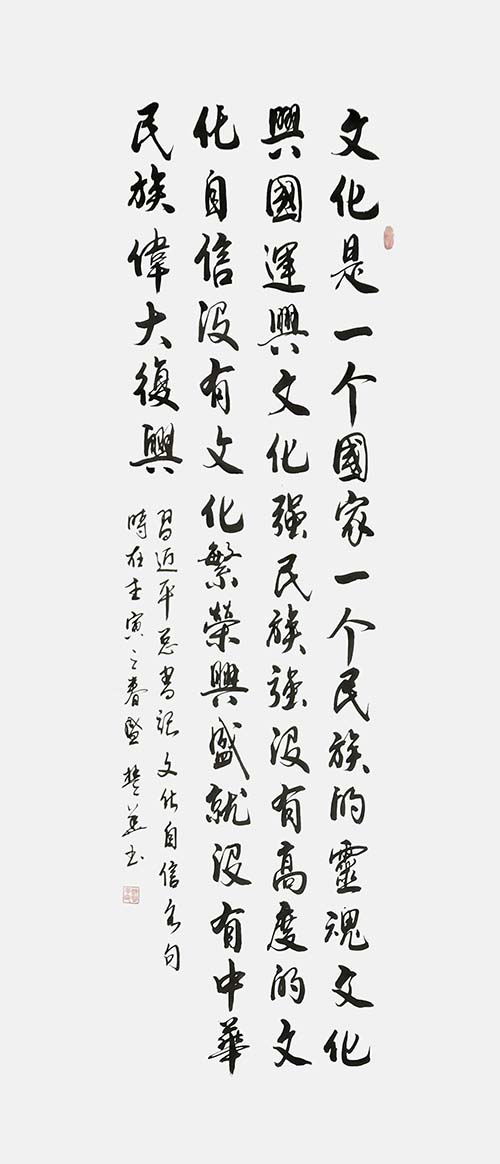 文化是一个國家一个民族的靈魂文化
興國運興文化强民族强没有高度的文
化自信没有文化繁榮興盛就没有中華
民族偉大復興
習近平总書記文化自信句
時在壬寅之春书